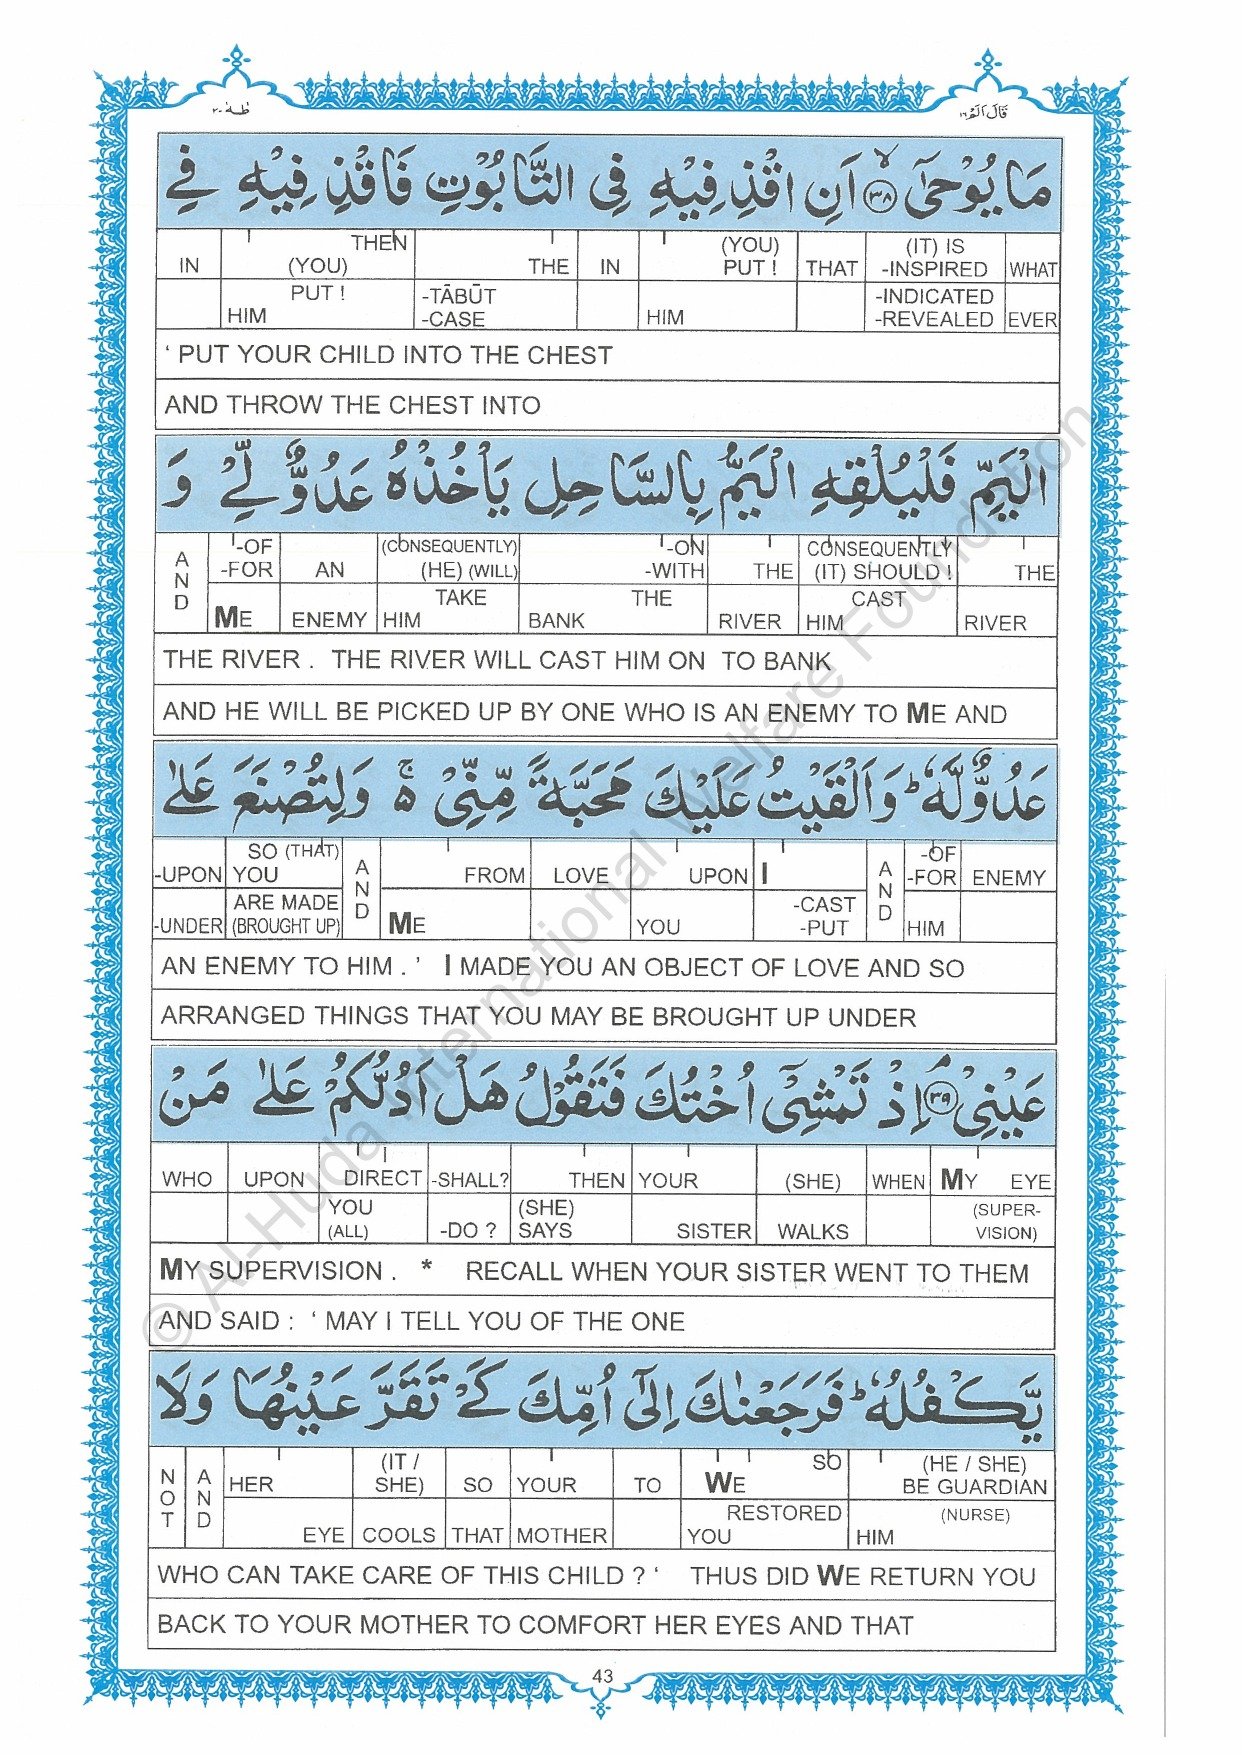 طٰهٰ ٢٠
قَالَ اَلَمْ ١٦
مَا يُوْحٰۤى ﴿٣٨﴾ۙ اَنِ اقْذِفِيْهِ فِى التَّابُوْتِ فَاقْذِفِيْهِ فِى
IN THEN (YOU) THE IN (YOU) PUT ! THAT (IT) IS -INSPIRED WHAT
HIM PUT ! -TĀBŪT -CASE HIM -INDICATED -REVEALED EVER
‘ PUT YOUR CHILD INTO THE CHEST
AND THROW THE CHEST INTO
الْيَمِّ فَلْيُلْقِهِ الْيَمُّ بِالسَّاحِلِ يَاْخُذْهُ عَدُوٌّ لِّىْ وَ
AND -OF -FOR AN (CONSEQUENTLY) (HE) (WILL) -ON -WITH THE CONSEQUENTLY (IT) SHOULD ! THE
ME ENEMY HIM TAKE BANK THE RIVER HIM CAST RIVER
THE RIVER . THE RIVER WILL CAST HIM ON TO BANK
AND HE WILL BE PICKED UP BY ONE WHO IS AN ENEMY TO ME AND
عَدُوٌّ لَّهٗؕ وَاَلْقَيْتُ عَلَيْكَ مَحَبَّةً مِّنِّىْ ۬ۚ وَلِتُصْنَعَ عَلٰى
-UPON SO (THAT) YOU AND FROM LOVE UPON I AND -OF -FOR ENEMY
-UNDER ARE MADE (BROUGHT UP) ME YOU -CAST -PUT HIM
AN ENEMY TO HIM . ’ I MADE YOU AN OBJECT OF LOVE AND SO
ARRANGED THINGS THAT YOU MAY BE BROUGHT UP UNDER
عَيْنِىْ ﴿٣٩﴾ۘ اِذْ تَمْشِىْۤ اُخْتُكَ فَتَقُوْلُ هَلْ اَدُلُّكُمْ عَلٰى مَنْ
WHO UPON DIRECT -SHALL? THEN YOUR (SHE) WHEN MY EYE
YOU (ALL) -DO ? (SHE) SAYS SISTER WALKS (SUPER-VISION)
MY SUPERVISION . * RECALL WHEN YOUR SISTER WENT TO THEM
AND SAID : ‘ MAY I TELL YOU OF THE ONE
يَّكْفُلُهٗؕ فَرَجَعْنٰكَ اِلٰۤى اُمِّكَ كَىْ تَقَرَّ عَيْنُهَا وَلَا
NOT AND HER (IT / SHE) SO YOUR TO WE SO (HE / SHE) BE GUARDIAN
EYE COOLS THAT MOTHER YOU RESTORED HIM (NURSE)
WHO CAN TAKE CARE OF THIS CHILD ? ‘ THUS DID WE RETURN YOU
BACK TO YOUR MOTHER TO COMFORT HER EYES AND THAT
43
© Al-Huda International Welfare Foundation